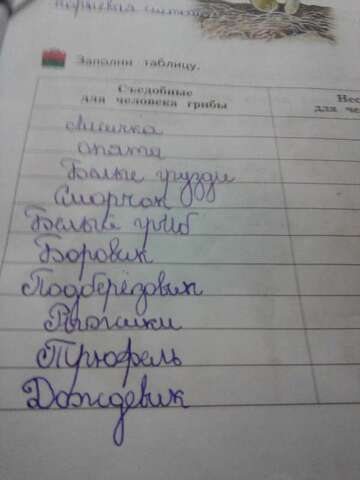 корневая система
Заполни таблицу.
Съедобные
для человека грибы
Нес
для че
Лисичка
опята
Белые грузди
Сморчок
Белый гриб
Боровик
Подберёзовик
Рыжики
Трюфель
Дождевик